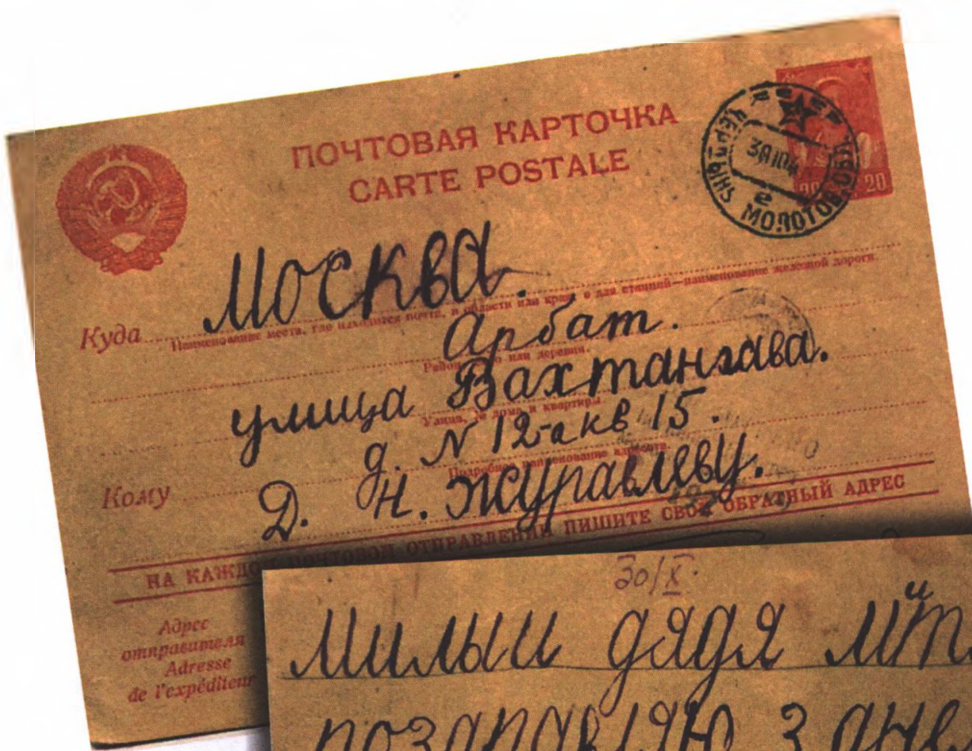 ПОЧТОВАЯ КАРТОЧКА
CARTE POSTALE
ЧЕРДЫНЬ МОЛОТОВ. ОБЛ
20
Куда
Москва.
Наименование места, где находится почта, и области или края, а для станций—наименование железной дороги.
Арбат.
Район, село или деревня.
улица Вахтангава.
Улица, № дома и квартиры.
д. N 12-а кв 15.
Подробное наименование адресата.
Кому
Д. Н. Журавлеву.
НА КАЖДОМ ПОЧТОВОМ ОТПРАВЛЕНИИ ПИШИТЕ СВОЙ ОБРАТНЫЙ АДРЕС
Адрес
отправителя
Adresse
de l'expéditeur
30/X.
Милый дядя Мит
поздравляю з дне